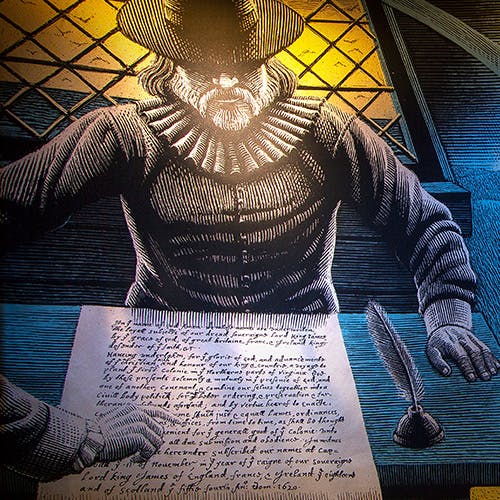 subjects of our dread soveraigne Lord King James
by ỹ grace of god, of great britaine, franc, & Ireland king,
defender of ỹ
Haveing undertaken, for ỹ glorie of god, and advancemente
of ỹ and honour of our king & countrie, a voyage to
plant ỹ first colonie in ỹ Northerne parts of Virginia. Doe
by these presents solemnly & mutualy in ỹ presence of god, and
one of another, covenant, & combine our selves togeather into a
Civill body politick, for ỹ better ordering, & preservation & fur=
therance of ỹ ends aforesaid; and by hearof to enacte,
Such just & equall Lawes, ordinances,
offices, from time to time, as shall be thought
for ỹ generall good of ỹ Colonie: unto
all due submission and obedience. In witnes
hereunder subscribed our names at Cap=
ỹ ·11· of November, in ỹ year of ỹ raigne of our soveraigne
Lord king James of England, france, & Ireland ỹ eighteenth
and of Scotland ỹ fiftie fourth. Ano: Dom. 1620.